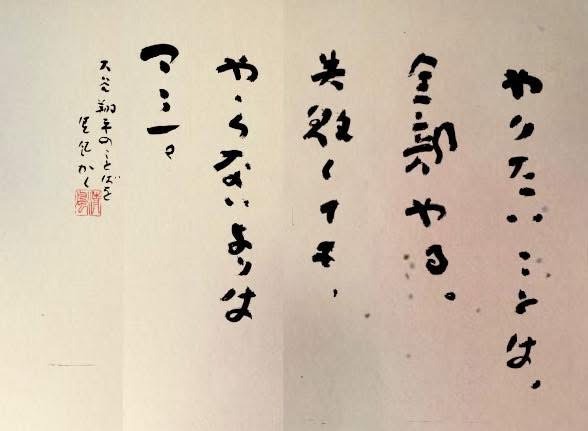 やりたいことは、
全部やる。
失敗しても、
やらないよりは
マシ。
大谷翔平のことばを
かく